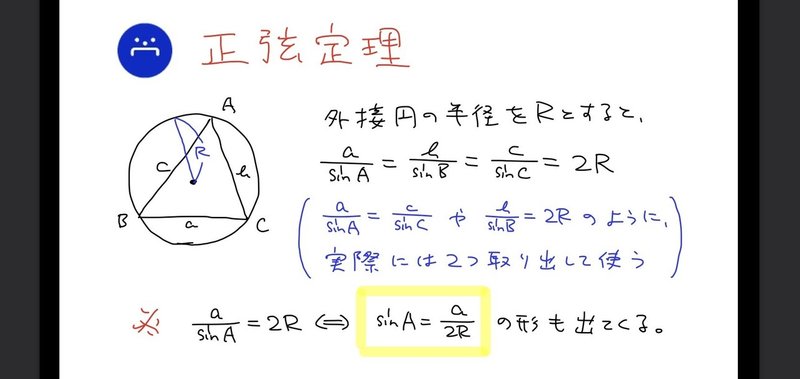 正弦定理
A
B
C
a
b
c
R
外接円の半径をRとすると、
a/sinA = b/sinB = c/sinC = 2R
(a/sinA = c/sinC や b/sinB = 2R のように、
実際には2つ取り出して使う)
※ a/sinA = 2R ⇔ sinA = a/2R の形も出てくる。